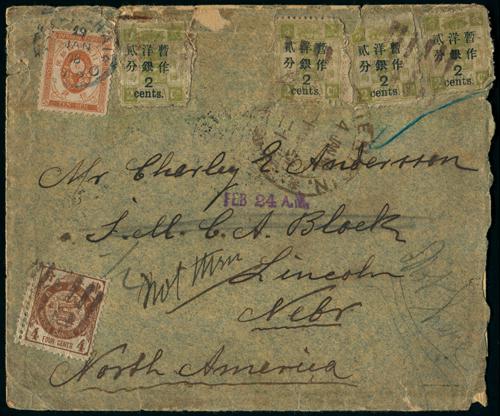 29
JAN
TEN SEN
暫作
洋銀
貳分
2
cents.
暫作
洋銀
貳分
2
cents.
暫作
洋銀
貳分
2
cents.
暫作
洋銀
貳分
2
cents.
Mr Charley E. Anderssen
FEB 24 A.M.
Y.M.C.A Block
Not there
Lincoln
Nebr
North America
4 FOUR CENTS 4